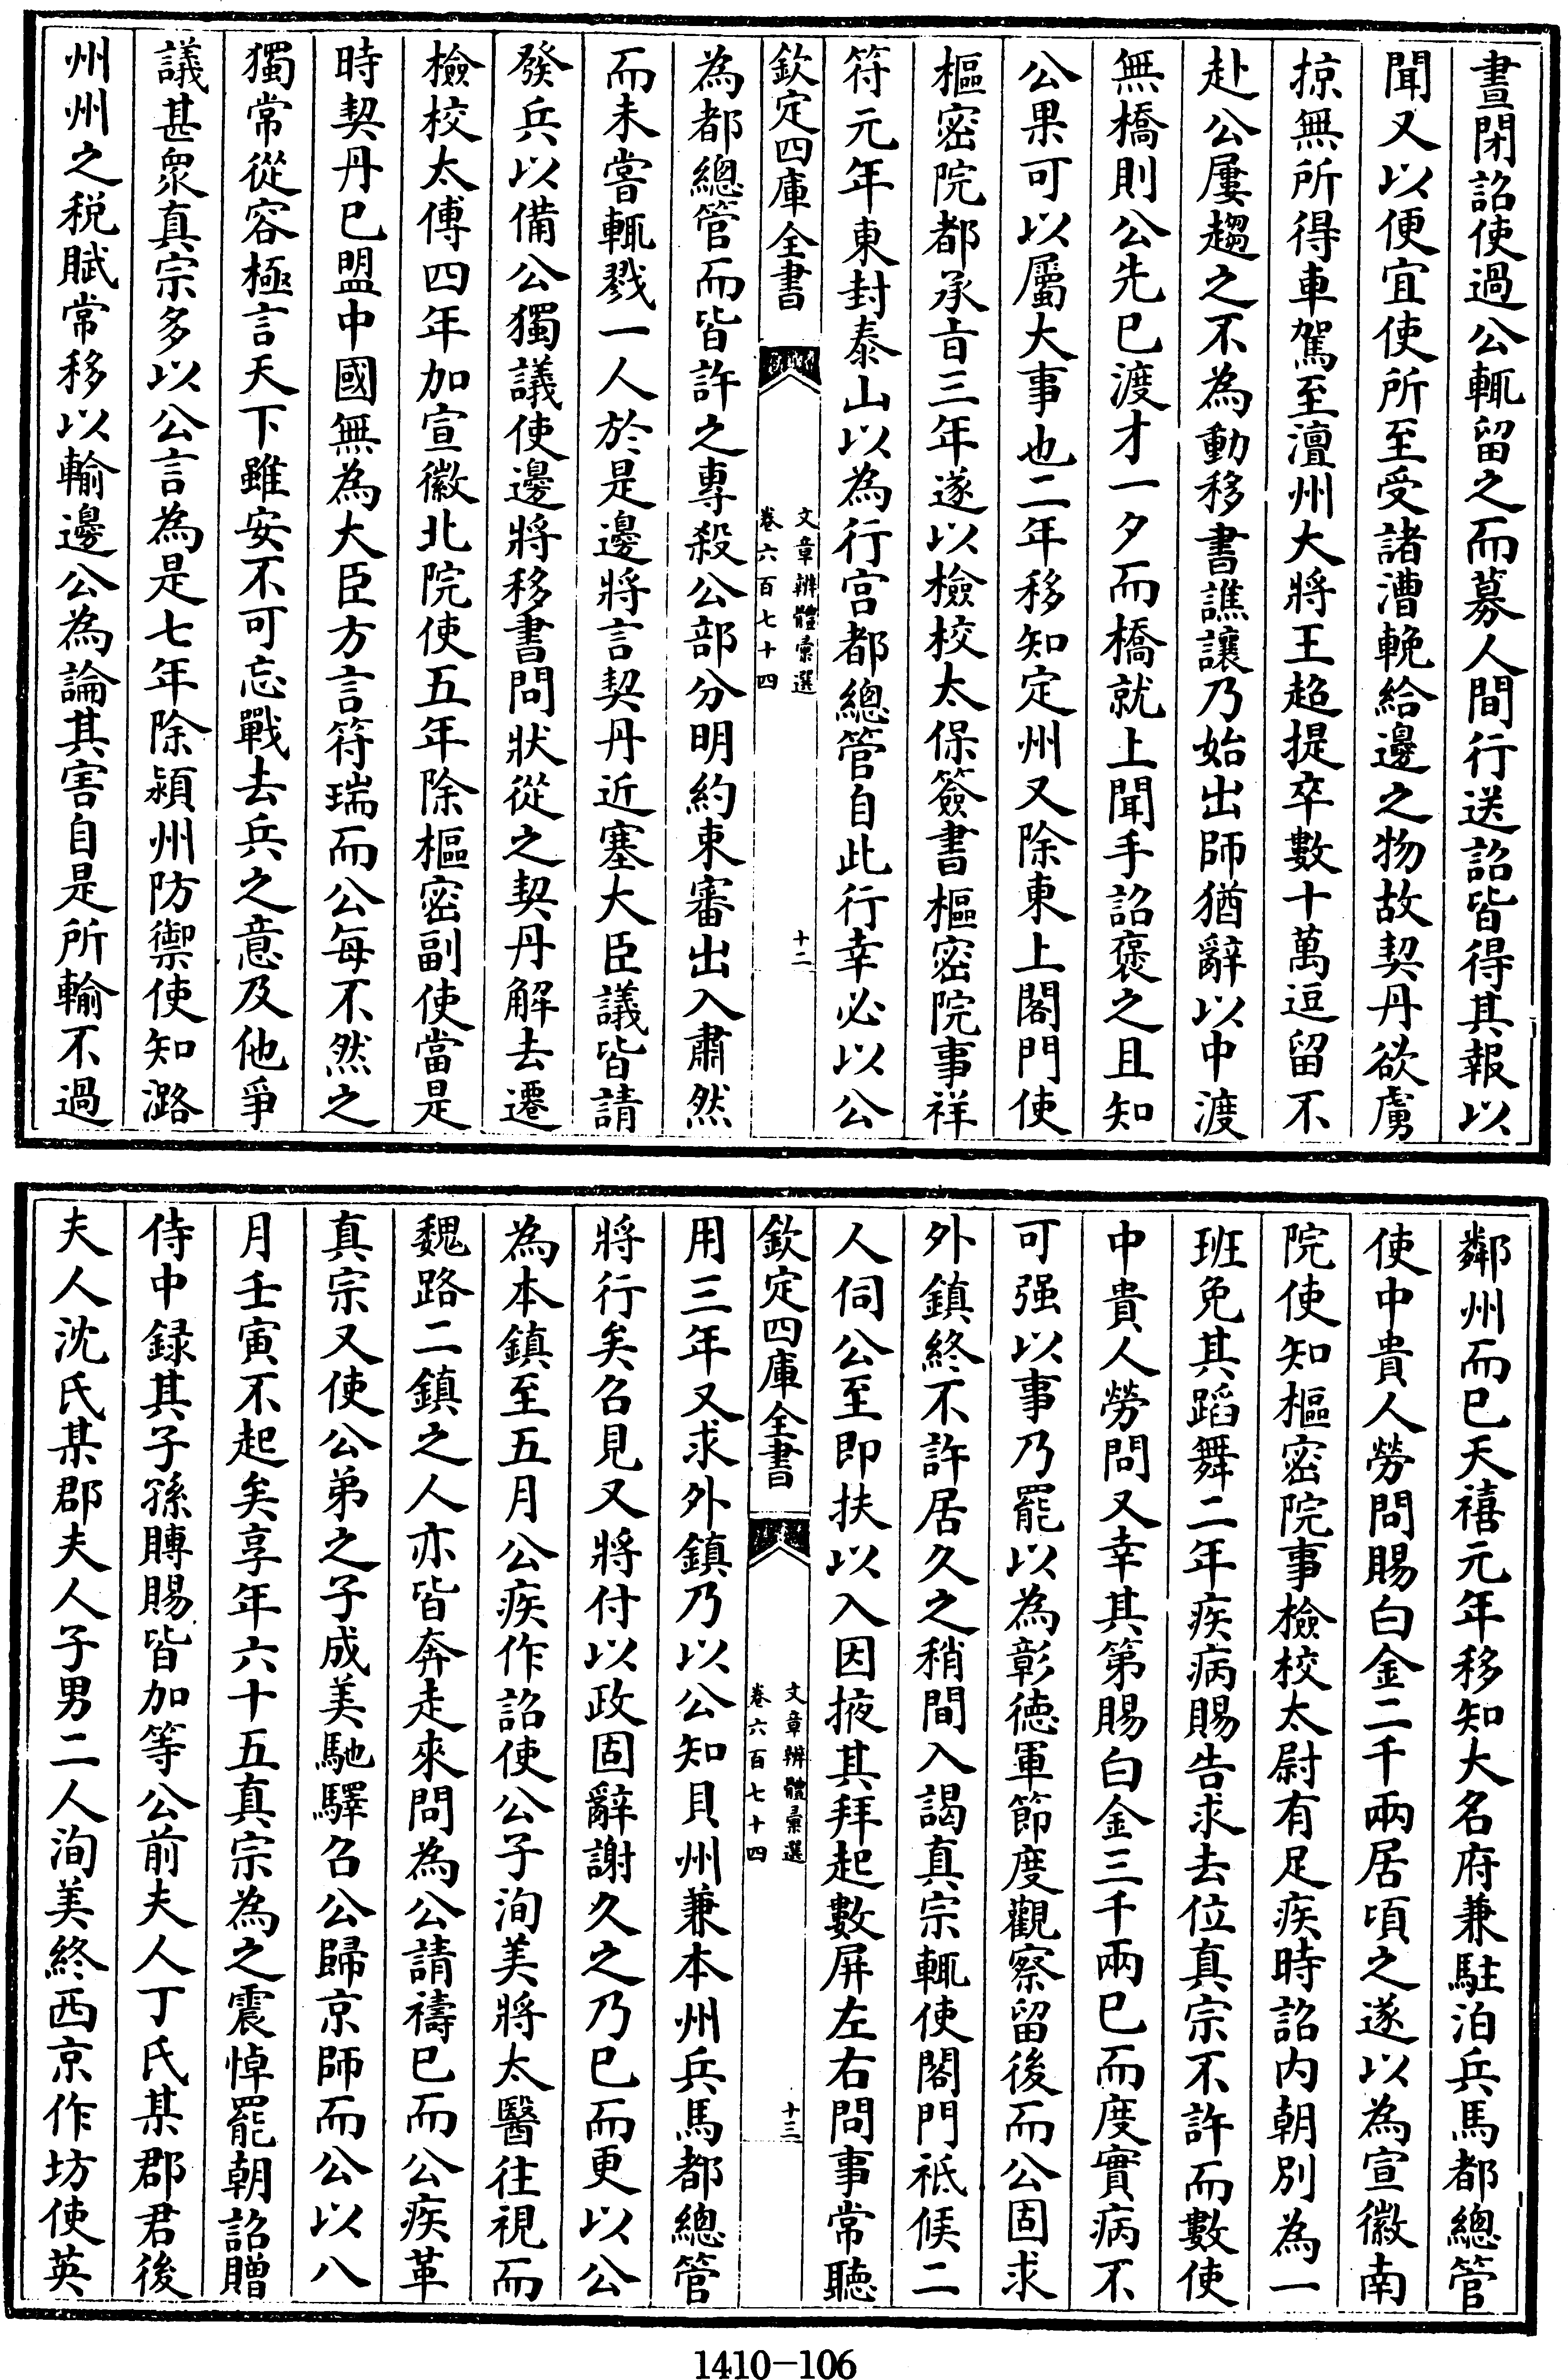 晝閉詔使過公輒留之而募人間行送詔皆得其報以
聞又以便宜使所至受諸漕輓給邊之物故契丹欲虜
掠無所得車駕至澶州大將王超提卒數十萬逗留不
赴公屢趨之不為動移書譙讓乃始出師猶辭以中渡
無橋則公先已渡才一夕而橋就上聞手詔褒之且知
公果可以屬大事也二年移知定州又除東上閤門使
樞密院都承旨三年遂以檢校太保簽書樞密院事祥
符元年東封泰山以為行宫都總管自此行幸必以公
欽定四庫全書
文章辨體彚選
卷六百七十四
十二
為都總管而皆許之專殺公部分明約束審出入肅然
而未嘗輒戮一人於是邊將言契丹近塞大臣議皆請
發兵以備公獨議使邊將移書問狀從之契丹解去遷
檢校太傅四年加宣徽北院使五年除樞密副使當是
時契丹已盟中國無為大臣方言符瑞而公每不然之
獨常從容極言天下雖安不可忘戰去兵之意及他爭
議甚衆真宗多以公言為是七年除潁州防禦使知潞
州州之税賦常移以輸邊公為論其害自是所輸不過
鄰州而已天禧元年移知大名府兼駐泊兵馬都總管
使中貴人勞問賜白金二千兩居頃之遂以為宣徽南
院使知樞密院事檢校太尉有足疾時詔内朝別為一
班免其蹈舞二年疾病賜告求去位真宗不許而數使
中貴人勞問又幸其第賜白金三千兩已而度實病不
可强以事乃罷以為彰徳軍節度觀察留後而公固求
外鎮終不許居久之稍間入謁真宗輒使閤門祗候二
人伺公至即扶以入因掖其拜起數屏左右問事常聽
欽定四庫全書
文章辨體彚選
卷六百七十四
十三
用三年又求外鎮乃以公知貝州兼本州兵馬都總管
將行矣召見又將付以政固辭謝久之乃已而更以公
為本鎮至五月公疾作詔使公子洵美將太醫往視而
魏路二鎮之人亦皆奔走來問為公請禱已而公疾革
真宗又使公弟之子成美馳驛召公歸京師而公以八
月壬寅不起矣享年六十五真宗為之震悼罷朝詔贈
侍中録其子孫賻賜皆加等公前夫人丁氏某郡君後
夫人沈氏某郡夫人子男二人洵美終西京作坊使英
1410—106